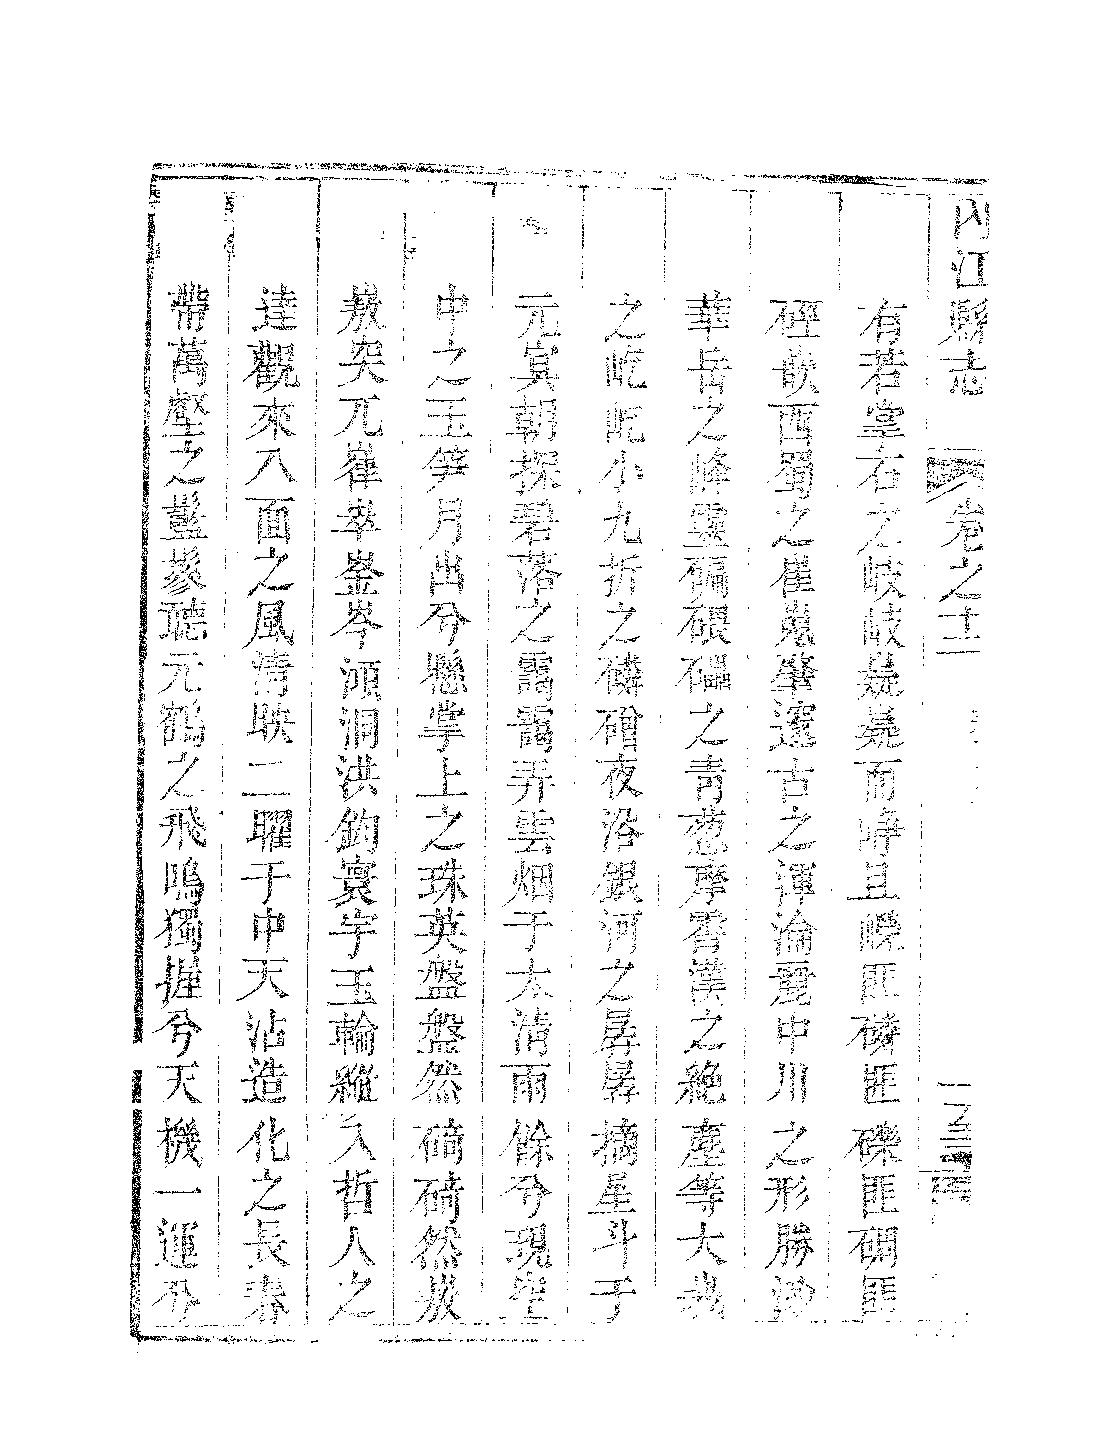 內江縣志 卷之十二
有若堂右之岐岐嶷嶷而崢且嶸匪磷匪礫匪硼匪
硜欿西蜀之崔嵬肇邃古之渾淪麗中川之形勝
華岳之峰靈碥硍礧之青蔥摩霄漢之絶塵等大哉
之屹屹小九折之磷磳夜浴銀河之晜晜摘星斗于
元冥朝探碧落之靄靄弄雲烟于太清雨餘兮現空
中之玉笋月出兮懸掌上之珠英盤盤然碕碕然嶅
嶅突兀崔崒崟岑澒洞洪鈞寰宇玉輪縱入哲人之
達觀來八面之風清映二曜于中天沾造化之長春
帶萬壑之藍撡聽元鶴之飛鳴獨握兮天機一運兮